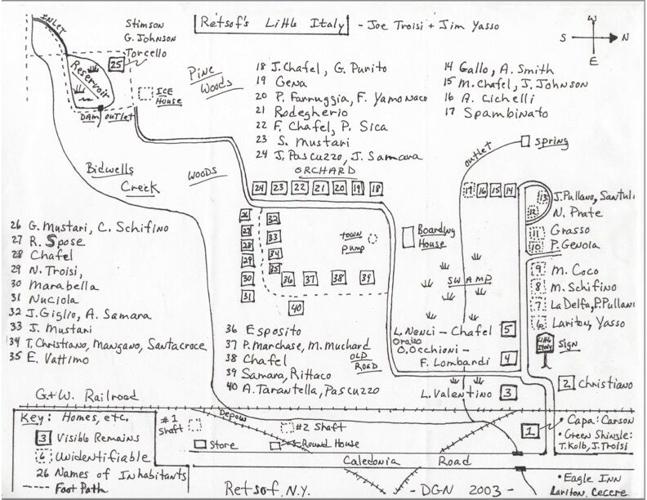 Retsof's Little Italy
- Joe Troisi + Jim Yasso
W
S
N
E
INLET
Reservoir
Stimson
G. Johnson
Torcello
25
ICE
HOUSE
DAM
OUTLET
Pine
Woods
WOODS
Bidwells
Creek
18 J. Chafel, G. Purito
19 Gena
20 P. Farruggia, F. Yamonaco
21 Rodegherio
22 F. Chafel, P. Sica
23 S. Mustari
24 J. Pascuzzo, J. Samara
ORCHARD
14 Gallo, A. Smith
15 M. Chafel, J. Johnson
16 A. Cichelli
17 Spambinato
OUTLET
Spring
24 23 22 21 20 19 18
17 16 15 14
13 J. Pullano, Santuli
12 N. Prate
11 Grasso
10 P. Genoia
9 M. Coco
8 M. Schifino
7 La Delfa, P. Pullano
6 Lariton, Yasso
LITTLE ITALY
SIGN
2 Christiano
26
27
28
29
30
31
32
33
34
35
36 37 38 39
40
TOWN
Pump
Boarding
House
SWAMP
L. Nenci - Chafel
5
O. Occhioni -
F. Lombardi
4
L. Valentino
3
26 G. Mustari, C. Schifino
27 R. Spose
28 Chafel
29 N. Troisi,
30 Marabella
31 Nuciola
32 J. Giglio, A. Samara
33 J. Mustari
34 T. Christiano, Mangano, Santacroce
35 E. Vattimo
36 Esposito
37 P. Marchase, M. Muchard
38 Chafel
39 Samara, Rittaco
40 A. Tarantella, Pascuzzo
OLD
ROAD
G+W. Railroad
Key: Homes, etc.
3 Visible Remains
6 Unidentifiable
26 Names of Inhabitants
Foot Path
#1
Shaft
Depow
#2 Shaft
Store
Round House
Caledonia Road
1
• Capa: Carson
• Green Shingle:
T. Kolb, J. Troisi
• Eagle Inn
Lariton, Cacere
Retsof, N.Y.
- DGN 2003 -